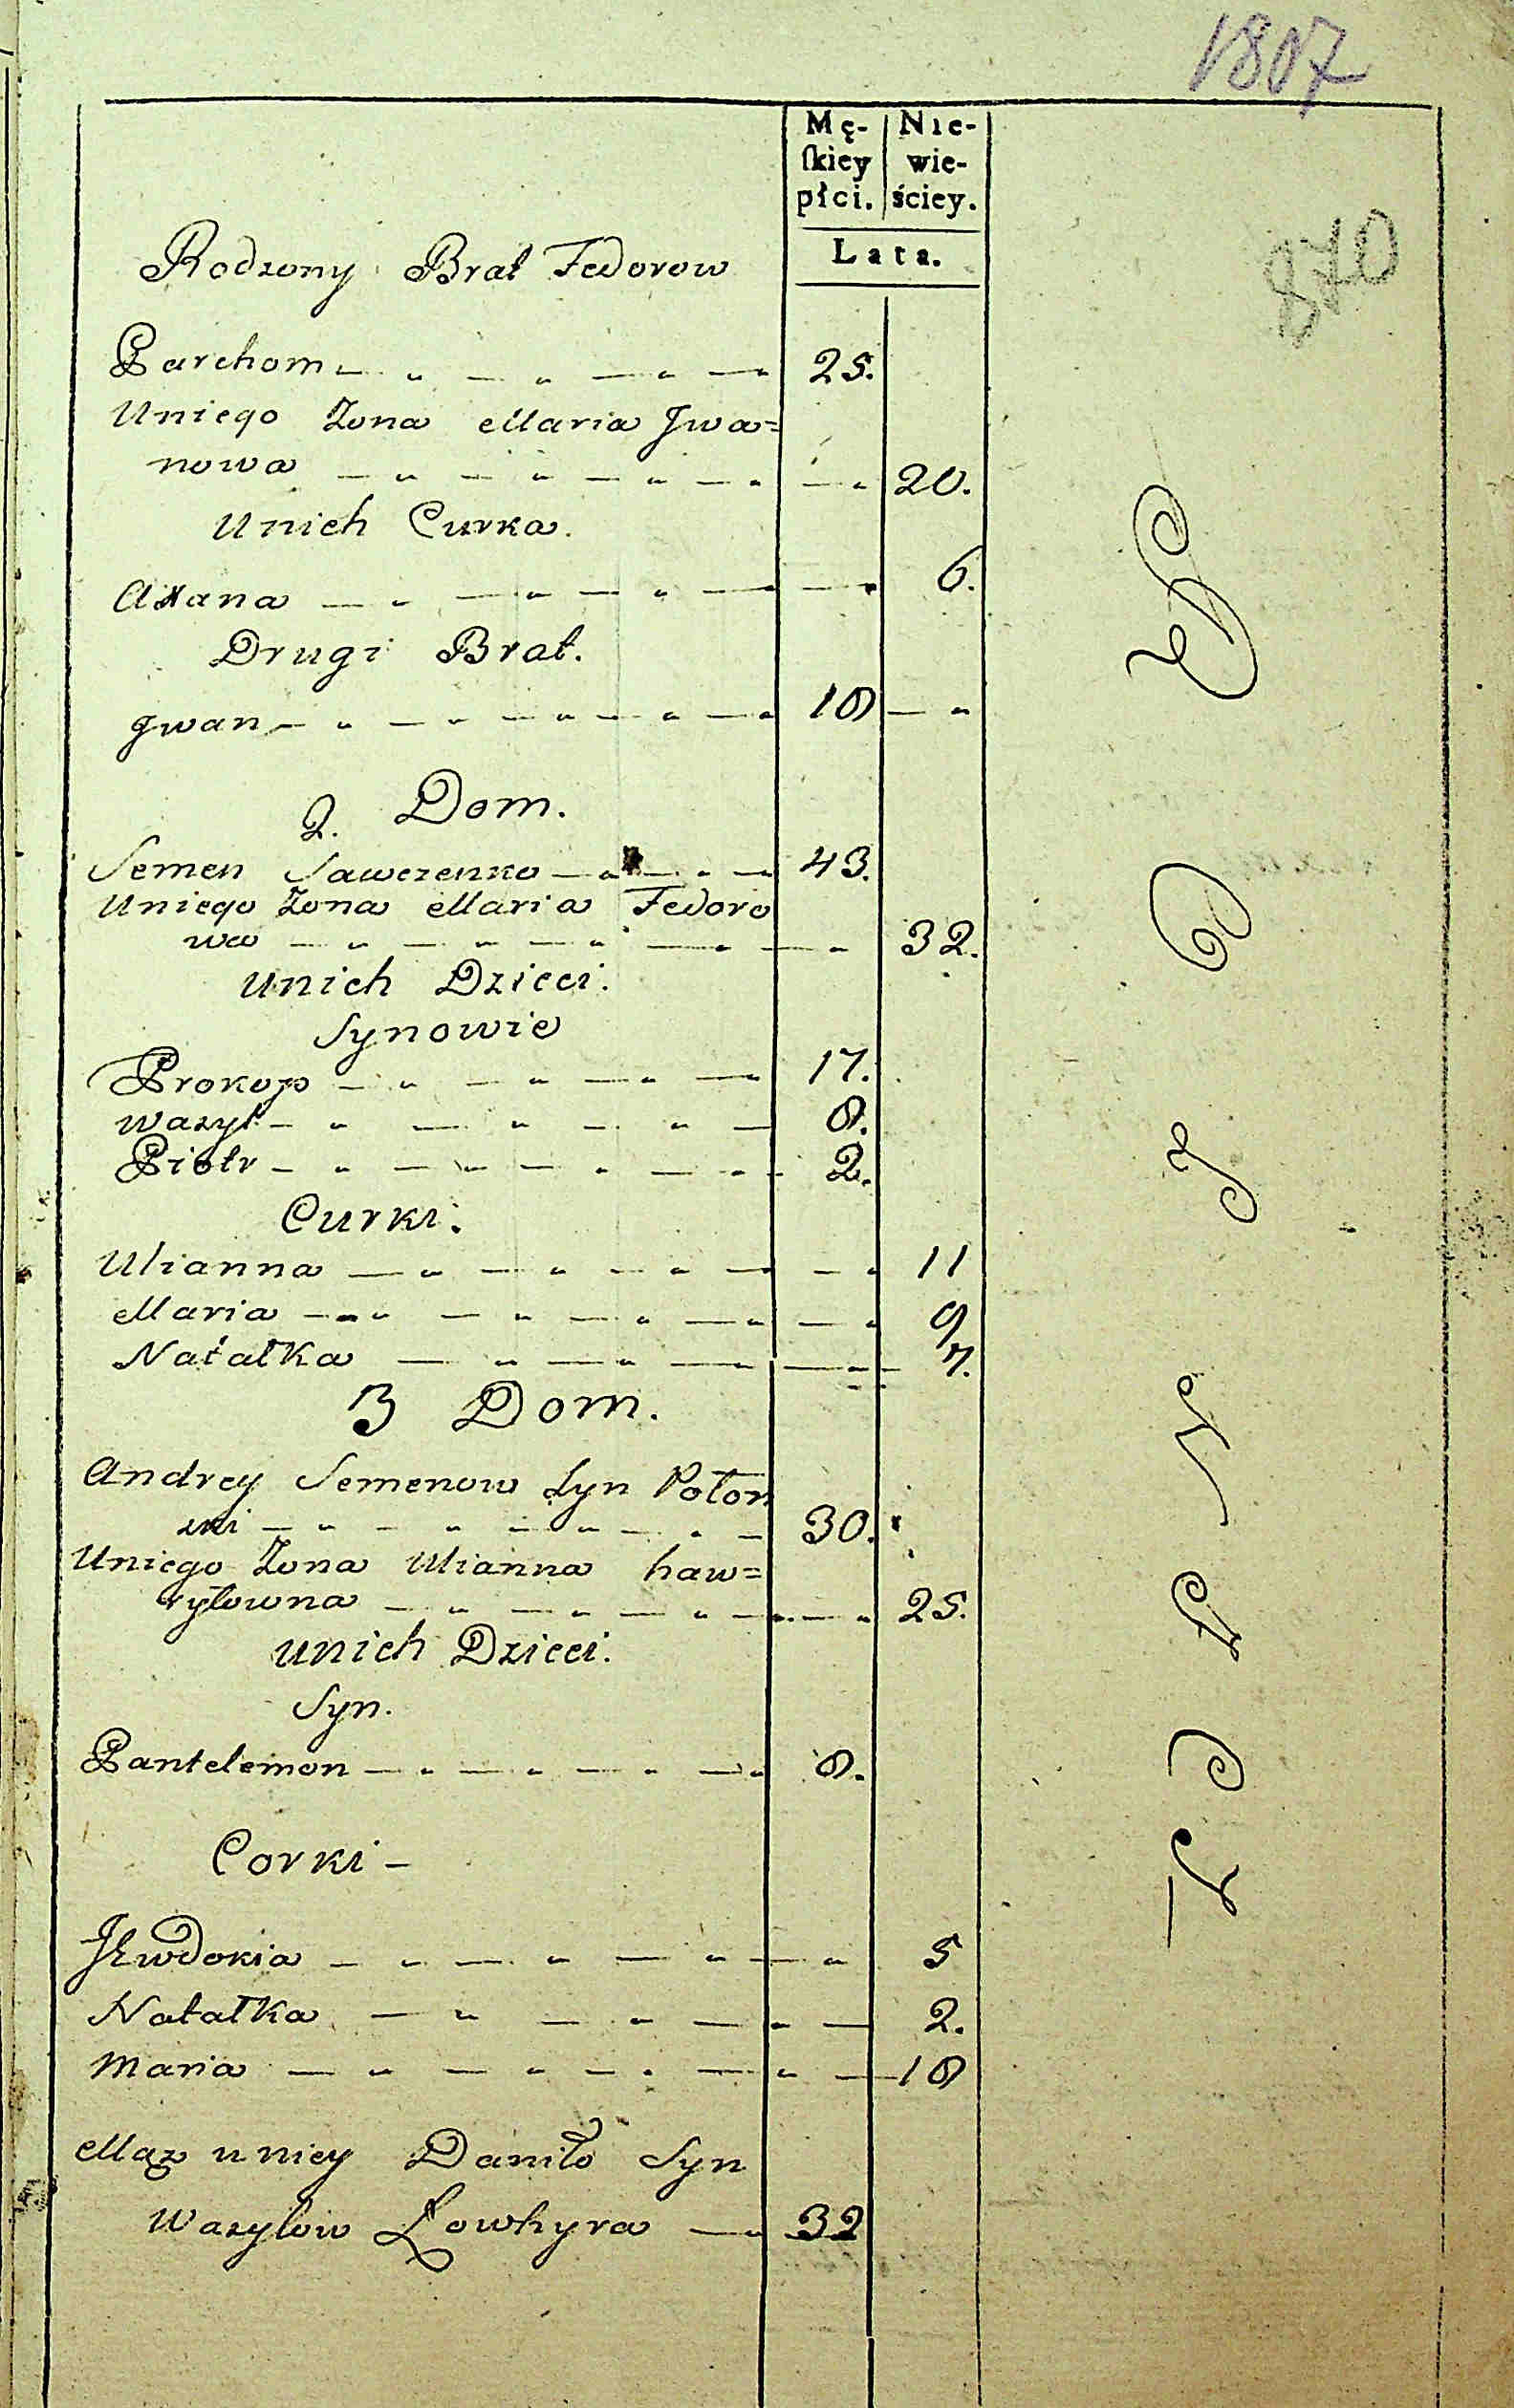 1807
Mę- Nie-
ſkiey wie-
płci. ściey.
Lata.
870
Rodzony Brat Fedorow
Parchom 25.
Uniego Zona Maria Jwa=
nowa 20.
Unich Curka.
Axana 6.
Drugi Brat.
Jwan 18
2. Dom.
Semen Sawczenko 43.
Uniego Zona Maria Fedoro
wa 32.
Unich Dzieci.
Synowie
Prokop 17.
Wazyl 8.
Piotr 2.
Curki.
Ulianna 11
Maria 9
Natałka 7.
3 Dom.
Andrey Semenow Syn Połon
zki 30.
Uniego Zona Ulianna haw=
ryłowna 25.
Unich Dzieci.
Syn.
Pantelemon 8.
Corki
Jewdokia 5
Natałka 2.
Maria 18
Mąz u niey Daniło Syn
Wazylow Łowhyra 32